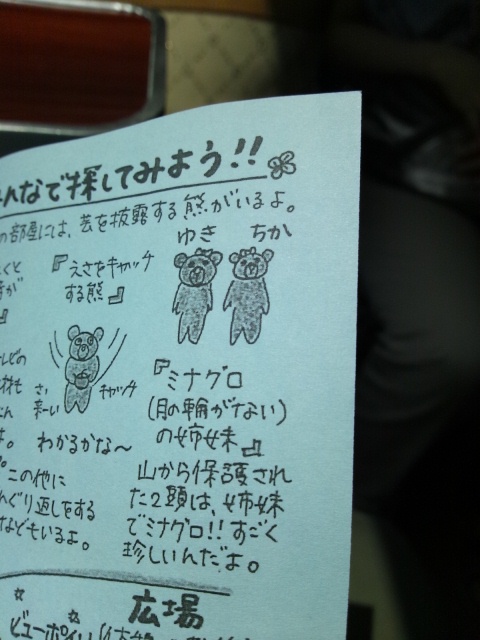 んなで探してみよう!!
の部屋には、芸を披露する熊がいるよ。
ゆき ちか
『えさをキャッチ
する熊』
さ、
来ーい
キャッチ
わかるかな〜
『ミナグロ
(月の輪がない)
の姉妹』
この他に
んぐり返しをする
などもいるよ。
山から保護され
た2頭は、姉妹
でミナグロ!!すごく
珍しいんだよ。
広場